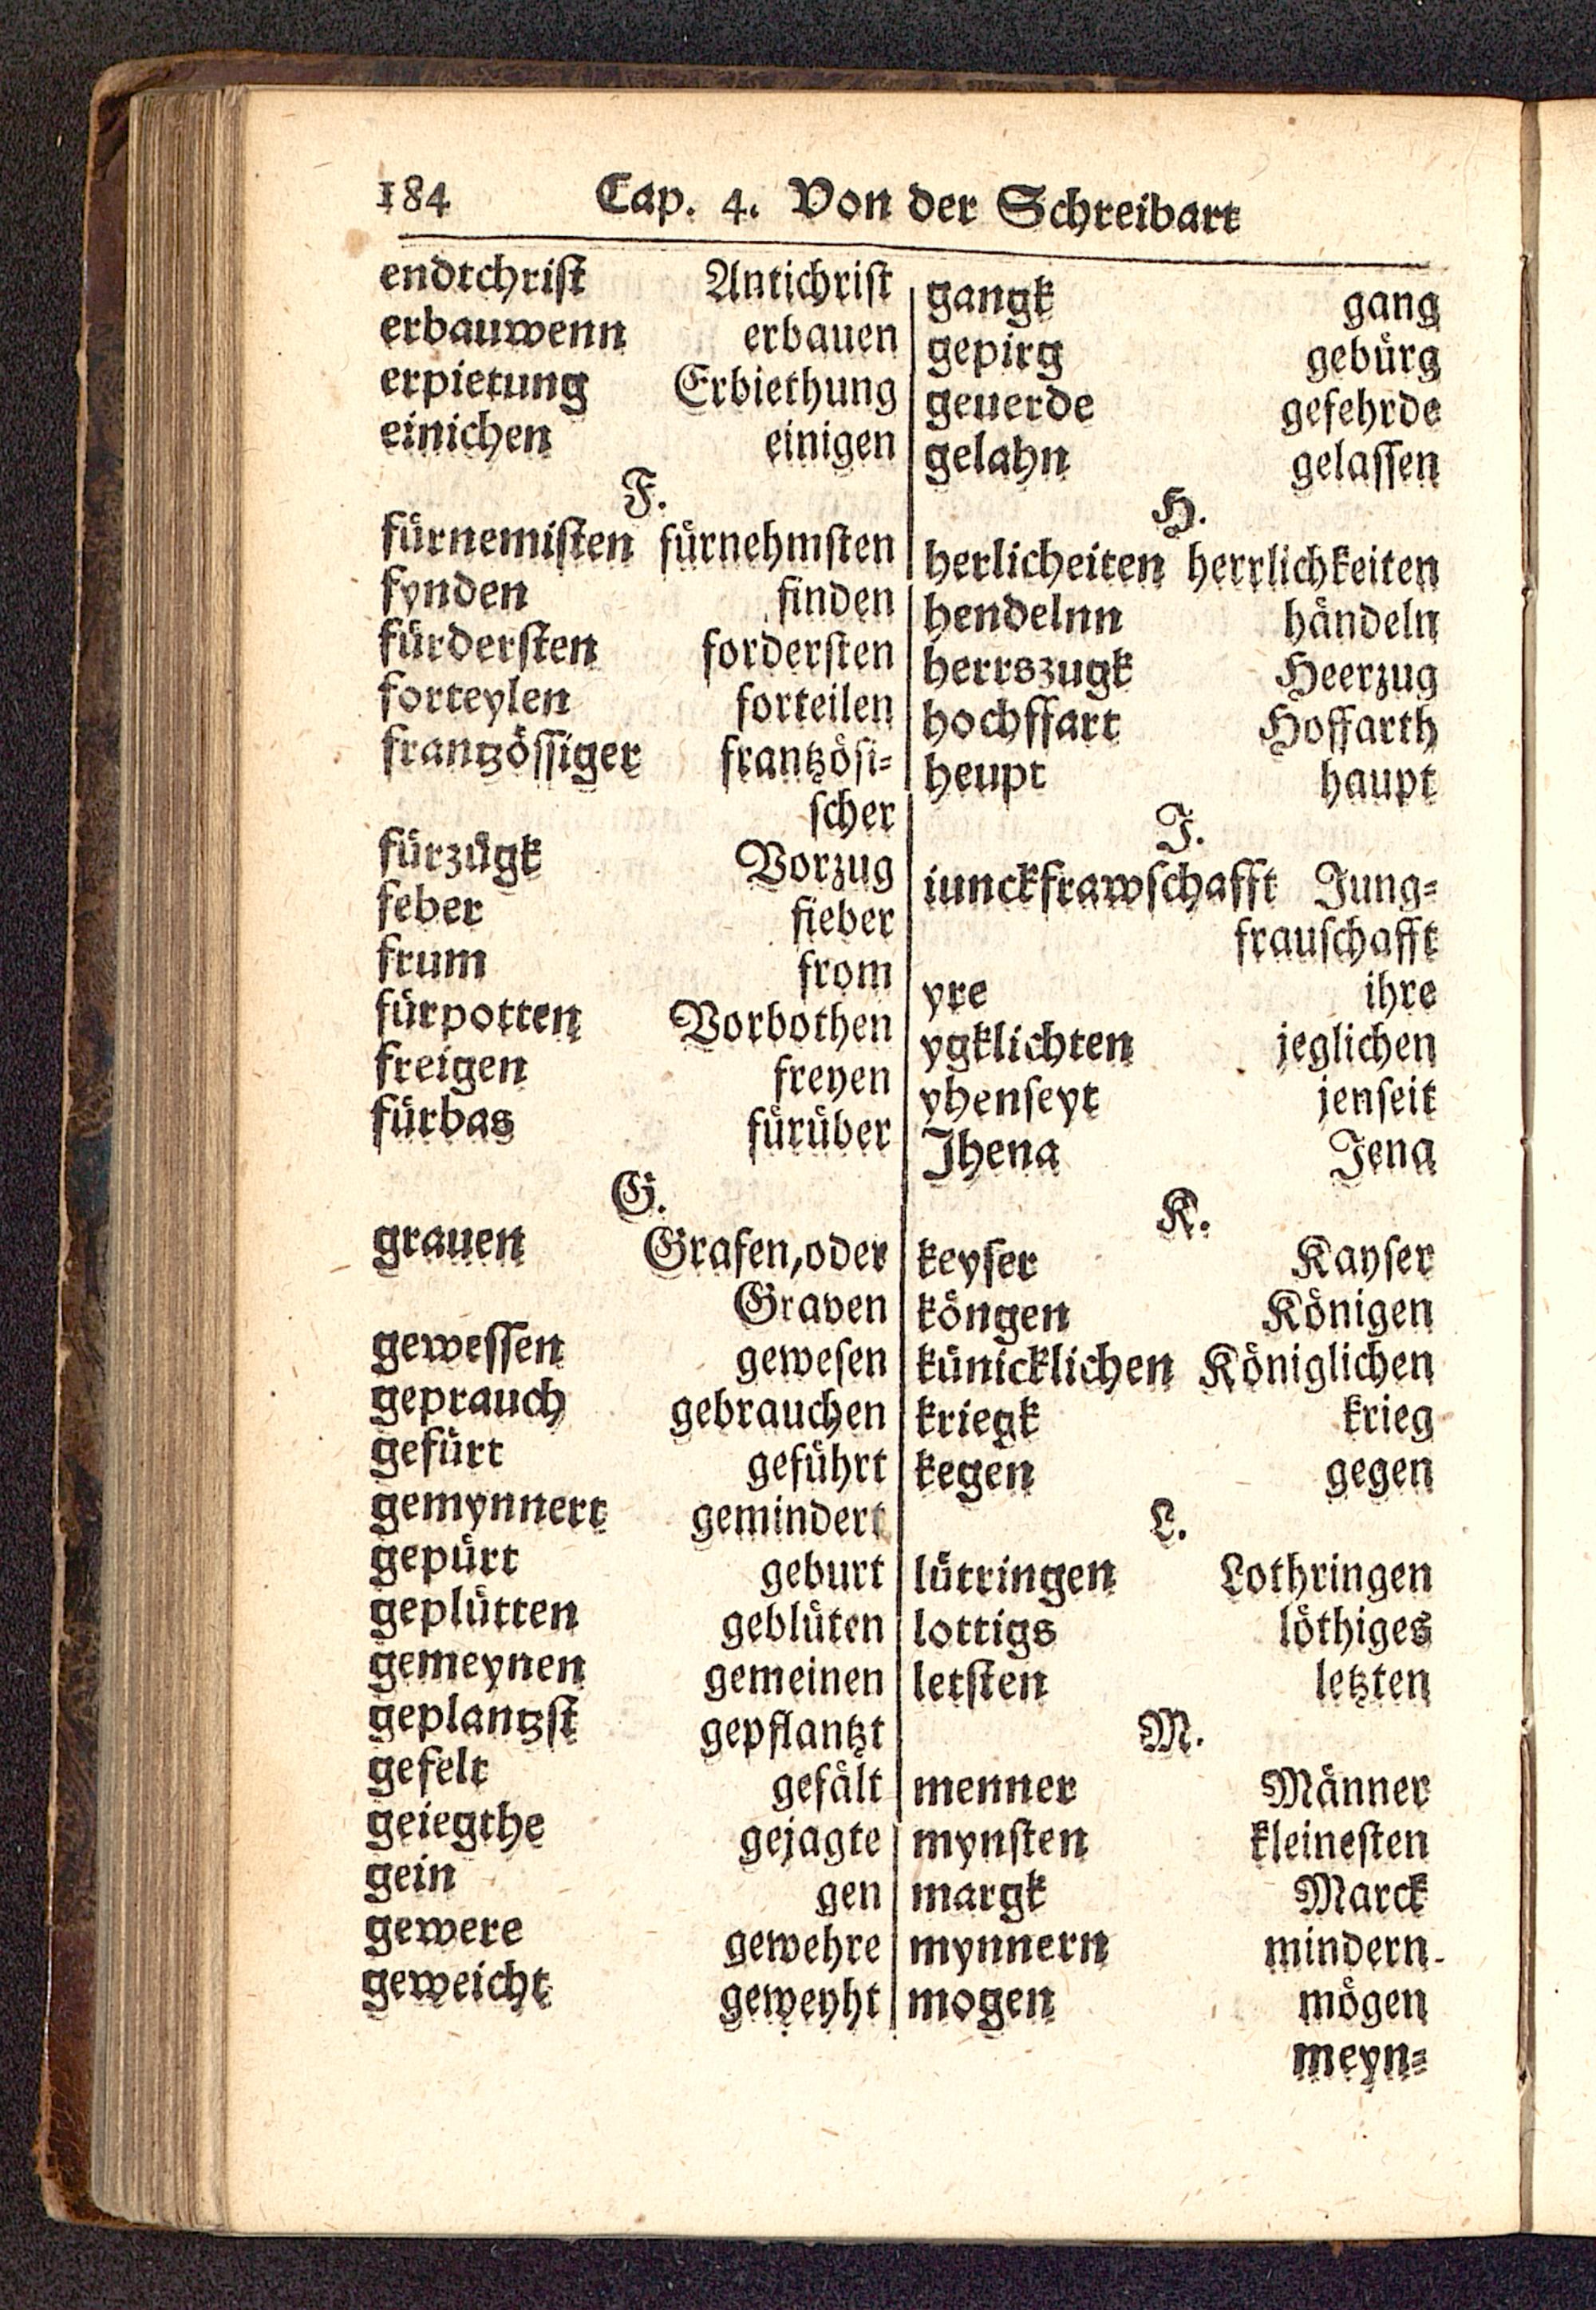 184 Cap. 4. Von der Schreibart
endtchriſt Antichriſt
erbauwenn erbauen
erpietung Erbiethung
einichen einigen
F.
fürnemiſten fürnehmſten
fynden finden
fürderſten forderſten
forteylen forteilen
frantzöſſiger frantzöſi-
ſcher
fürzůgk Vorzug
feber fieber
frum from
fürpotten Vorbothen
freigen freyen
fürbas fürüber
G.
grauen Grafen, oder
Graven
geweſſen geweſen
geprauch gebrauchen
gefürt geführt
gemynnert gemindert
gepürt geburt
geplütten geblüten
gemeynen gemeinen
geplantzſt gepflantzt
gefelt gefält
geiegthe gejagte
gein gen
gewere gewehre
geweicht geweyht
gangk gang
gepirg gebürg
geuerde gefehrde
gelahn gelaſſen
H.
herlicheiten herrlichkeiten
hendelnn händeln
herrszugk Heerzug
hochffart Hoffarth
heupt haupt
J.
iunckfrawſchafft Jung-
frauſchafft
yre ihre
ygklichten jeglichen
yhenſeyt jenſeit
Jhena Jena
K.
keyſer Kayſer
köngen Königen
künicklichen Königlichen
kriegk krieg
kegen gegen
L.
lütringen Lothringen
lottigs löthiges
letſten letzten
M.
menner Männer
mynſten kleineſten
margk Marck
mynnern mindern
mogen mögen
meyn-